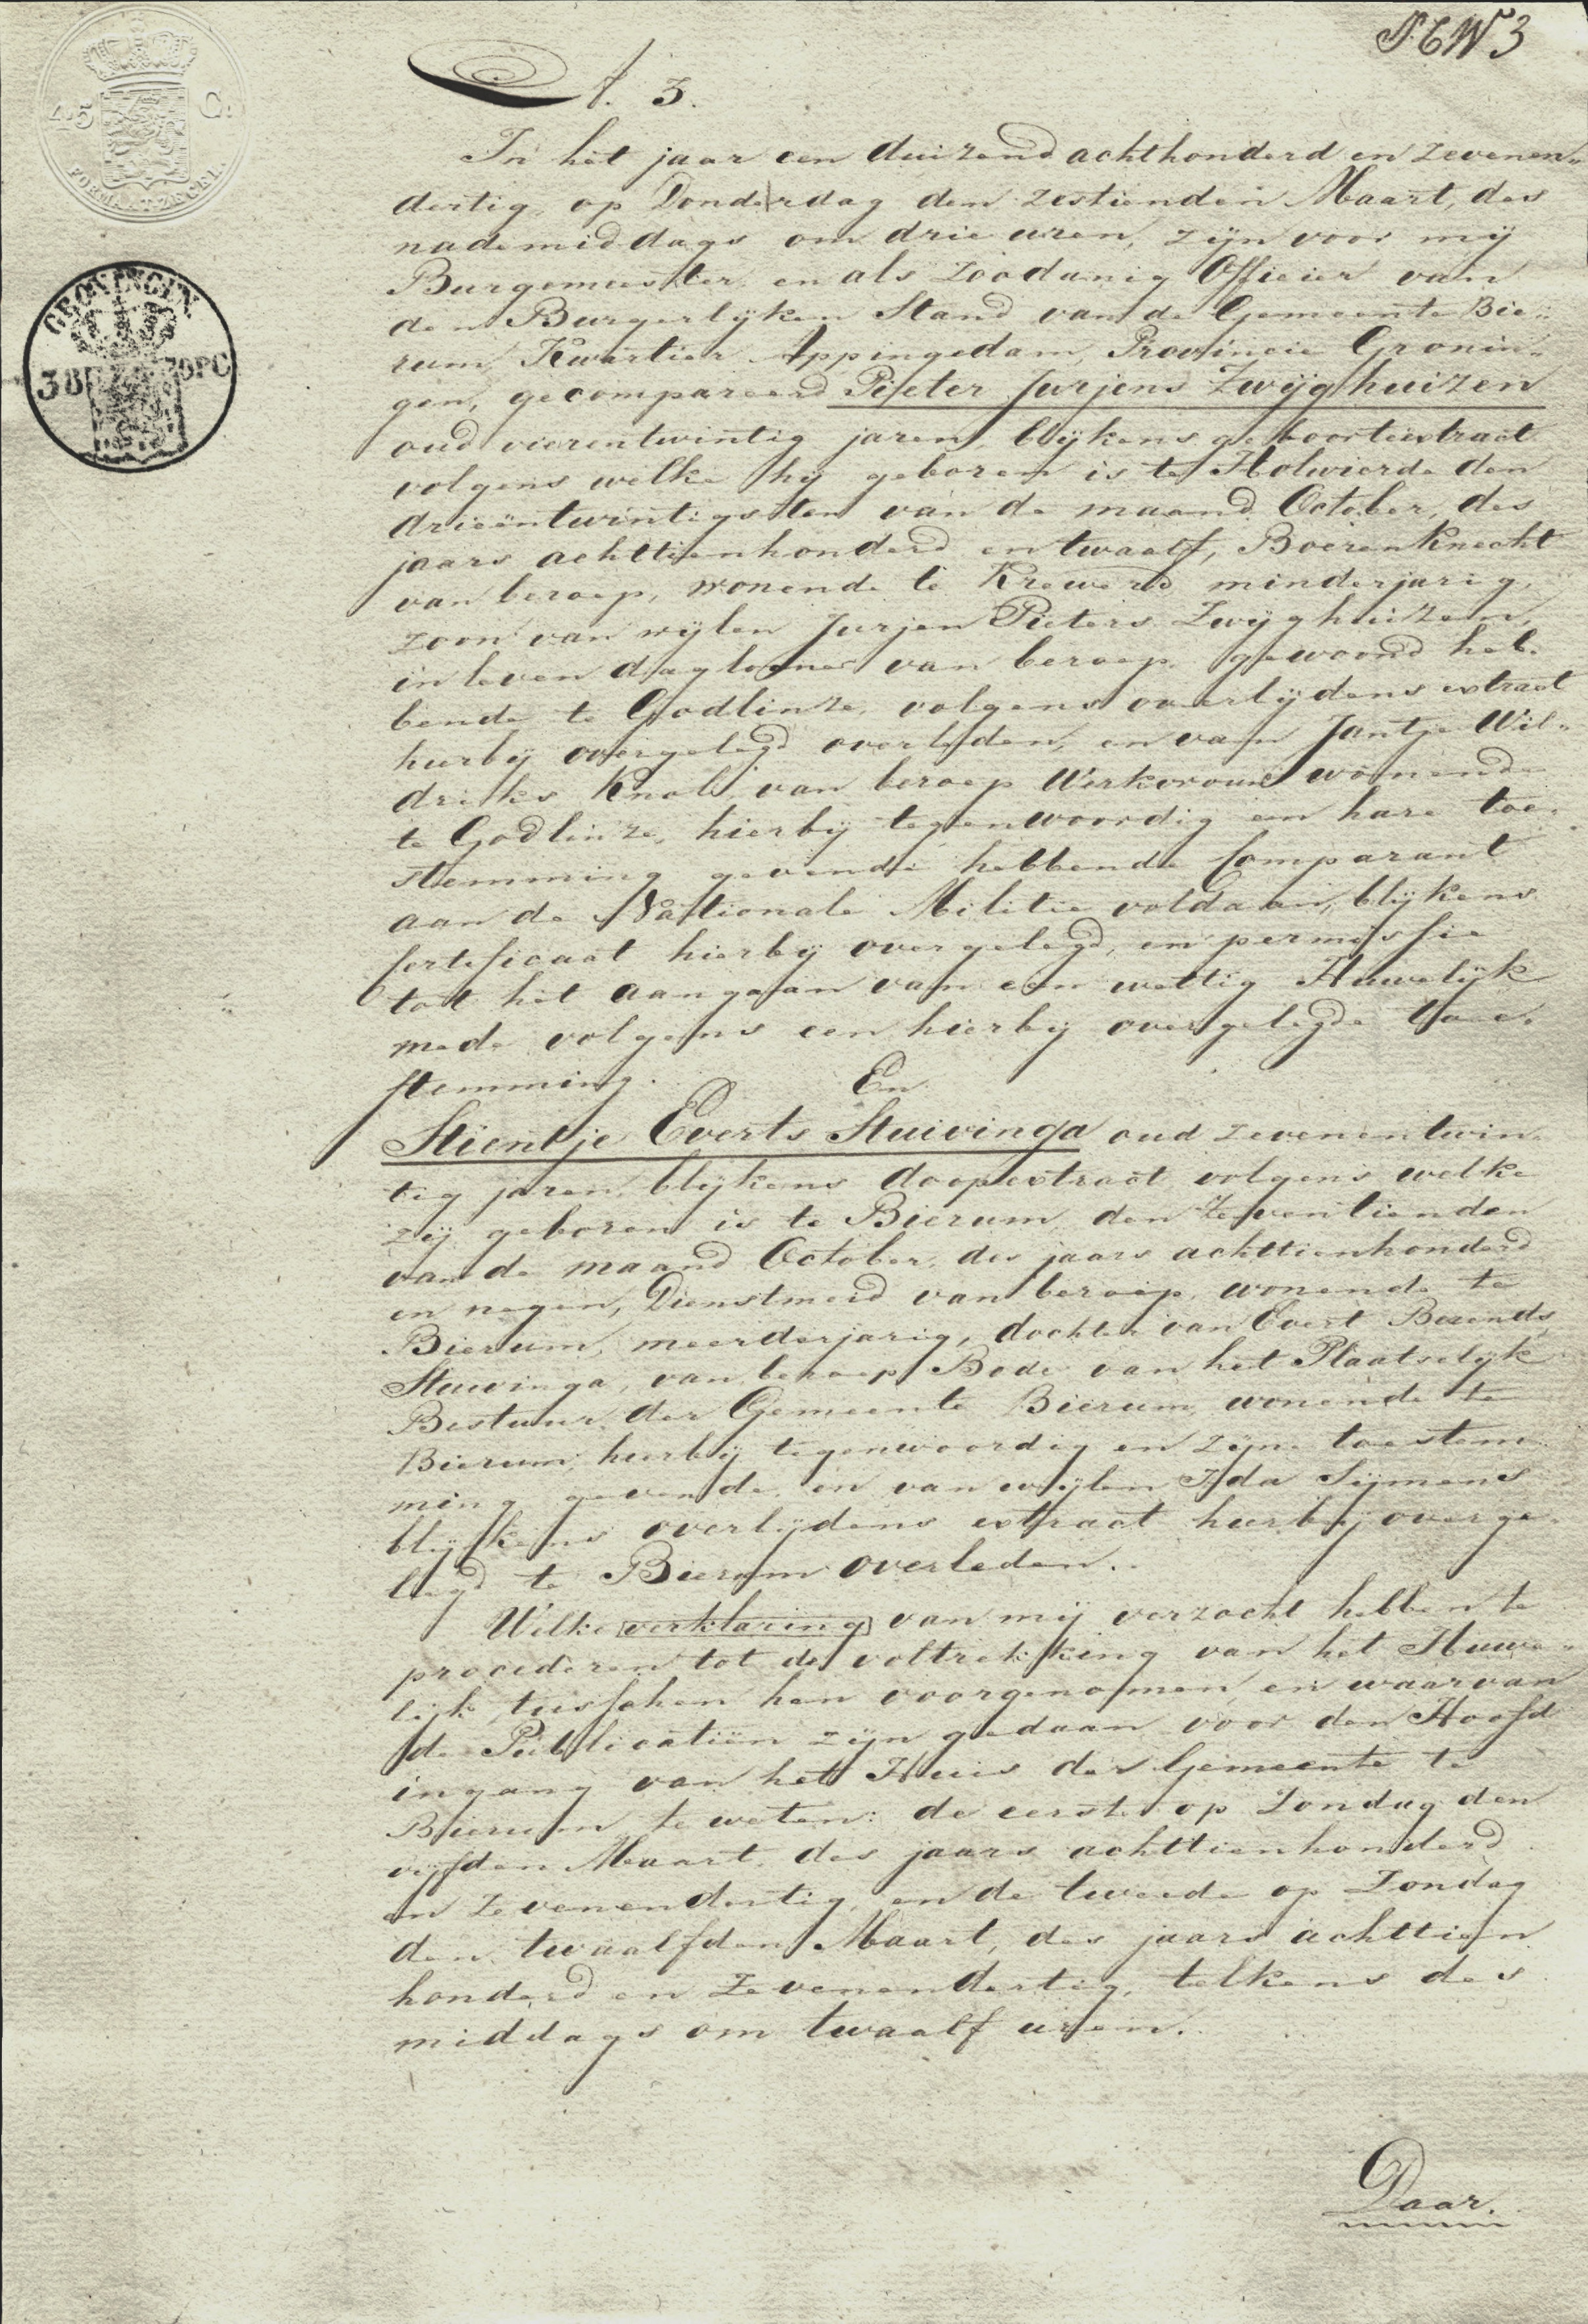 N. 3.
45 C.
FORMAATZEGEL.
GRONINGEN
38
In het jaar een duizend achthonderd en zevenen„
dertig, op Donderdag den zestienden Maart, des
nademiddags om drie uren, zijn voor mij
Burgemeester en als zoodanig Officier van
den Burgerlijken Stand van de Gemeente Bie„
rum, Kwartier Appingedam, Provincie Gronin„
gen, gecompareerd Pieter Jurjens Zwijghuizen
oud vierentwintig jaren, blijkens geboorteextract
volgens welke hij geboren is te Holwierde den
drieëntwintigsten van de maand October, des
jaars achttienhonderd en twaalf, Boerenknecht
van beroep, wonende te Krewerd minderjarig,
zoon van wijlen Jurjen Pieters Zwijghuizen,
in leven daglooner van beroep gewoond heb„
bende te Godlinze, volgens overlijdens extract
hierbij overgelegd overleden, en van Jantje Wil„
driks Knol, van beroep Werkvrouw wonende
te Godlinze, hierbij tegenwoordig en hare toe„
stemming gevende hebbende Comparant
aan de Nationale Militie voldaan, blijkens
Certificaat hierbij overgelegd, en permissie
tot het aangaan van een wettig Huwelijk
mede volgens een hierbij overgelegde toe„
stemming. En
Stientje Everts Stuivinga oud zevenentwin„
tig jaren, blijkens doopextract volgens welke
zij geboren is te Bierum den Zeventienden
van de maand October, des jaars achttienhonderd
en negen, Dienstmeid van beroep, wonende te
Bierum, meerderjarig, dochter van Evert Barends
Stuivinga, van beroep Bode van het Plaatselijk
Bestuur der Gemeente Bierum, wonende te
Bierum, hierbij tegenwoordig en zijne toestem„
ming gevende, en van wijlen Ida Sijmens
blijkens overlijdens extract hierbij overge„
legd te Bierum overleden.
Welke verklaring van mij verzocht hebben te
procederen tot de voltrekking van het Huwe„
lijk tusschen hen voorgenomen, en waarvan
de Publicatiën zijn gedaan voor den Hoofd
ingang van het Huis der Gemeente te
Bierum te weten: de eerste op Zondag den
vijfden Maart, des jaars achttienhonderd
en Zevenendertig, en de tweede op Zondag
den twaalfden Maart, des jaars achttien
honderd en Zevenendertig, telkens des
middags om twaalf uren.
Daar.